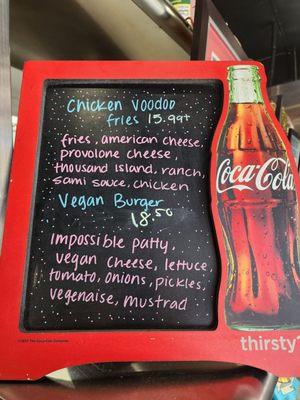 Chicken Voodoo
fries 15.99+
fries, american cheese,
provolone cheese,
thousand island, ranch,
sami sauce, chicken
Vegan Burger
18.50
Impossible patty,
vegan cheese, lettuce,
tomato, onions, pickles,
vegenaise, mustrad
Coca-Cola
thirsty?
The Coca-Cola Company